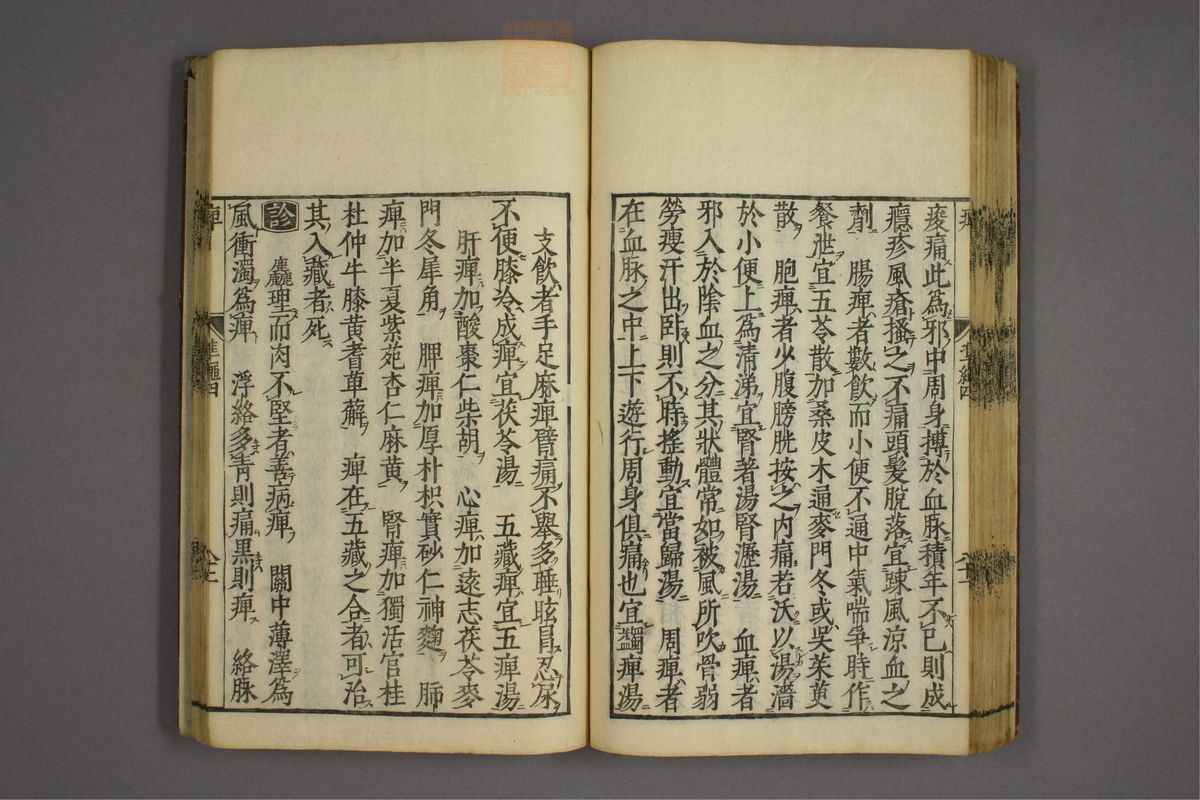 痠痛此為邪中周身搏於血脉積年不已則成
癮疹風瘡搔之不痛頭髮脫落宜踈風涼血之
劑　腸痺者數飲而小便不通中氣喘爭時作
飧泄宜五苓散加桑皮木通麥門冬或吳茱萸
散　胞痺者少腹膀胱按之內痛若沃以湯濇
於小便上為清涕宜腎著湯腎瀝湯　血痺者
邪入於陰血之分其狀體常如被風所吹骨弱
勞瘦汗出臥則不時搖動宜當歸湯　周痺者
在血脉之中上下遊行周身俱痛也宜蠲痺湯
支飲者手足麻痺臂痛不舉多睡眩冒忍尿
不便膝冷成痺宜茯苓湯　五藏痺宜五痺湯
肝痺加酸棗仁柴胡　心痺加遠志茯苓麥
門冬犀角　脾痺加厚朴枳實砂仁神麴　肺
痺加半夏紫菀杏仁麻黃　腎痺加獨活官桂
杜仲牛膝黃耆萆薢　痺在五藏之合者可治
其入藏者死
診　麤理而肉不堅者善病痺　關中薄澤為
風衝濁為痺　浮絡多青則痛黑則痺　絡脉
痺
準繩四